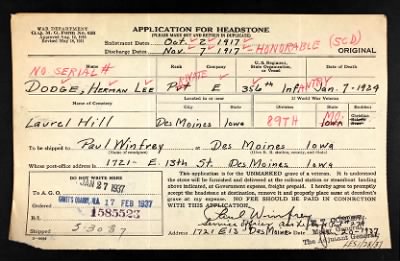 WAR DEPARTMENT
APPLICATION FOR HEADSTONE
(PLEASE MAKE OUT AND RETURN IN DUPLICATE)
Enlistment Dates Oct. 2 1917
Discharge Dates Nov. 7 1917 - HONORABLE (SCD) ORIGINAL
NO SERIAL#
Name Rank Company U.S. Regiment, State Organization, or Vessel Date of Death
DODGE, HERMAN LEE Pvt E 356th INFANTRY Jan. 7-1924
Name of Cemetery Located in or near If World War Veteran
Laurel Hill Des Moines Iowa 89TH MO. Iowa
To be shipped to Paul Winfrey at Des Moines Iowa
Whose post-office address is 1721 - E. 13th St. Des Moines Iowa
DO NOT WRITE HERE
This application is for the UNMARKED grave of a veteran. It is understood
the stone will be furnished and delivered at the railroad station or steamboat landing
above indicated, at Government expense, freight prepaid. I hereby agree to promptly
accept the headstone at destination, remove it and properly place same at decedent's
grave at my expense. NO FEE SHOULD BE PAID IN CONNECTION WITH THIS APPLICATION.
JAN 27 1937
To A. G. O.
17 FEB 1937
1585523
Paul Winfrey
5-3087
1721 E 13 Des Moines 20-1937
The Adjutant General